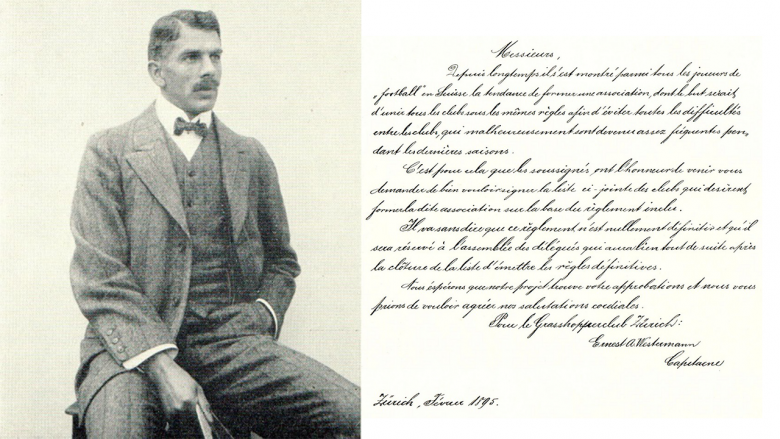 Messieurs,
Depuis longtemps il s'est montré parmi tous les joueurs de
„football" en Suisse la tendance de former une association, dont le but serait
d'unir tous les clubs sous les mêmes règles afin d'éviter toutes les difficultés
entre les club, qui malheureusement sont devenu assez fréquentes pen„
dant les dernières saisons.
C'est pour cela que les soussignés, ont l'honneur de venir vous
demander de bien vouloir signer la liste ci-jointe des clubs qui désirent
former la dite association sur la base du règlement inclus.
Il va sans dire que ce règlement n'est nullement définitif et qu'il
sera réservé à l'assemblée des délégués qui aura bien tout de suite après
la clôture de la liste d'émettre les règles définitives.
Nous espérons que notre projet trouve votre approbations et nous vous
prions de vouloir agréer nos salutations cordiales.
Pour le Grasshopperclub Zürich:
Ernest A. Westermann
Capitaene
Zürich, Février 1895.